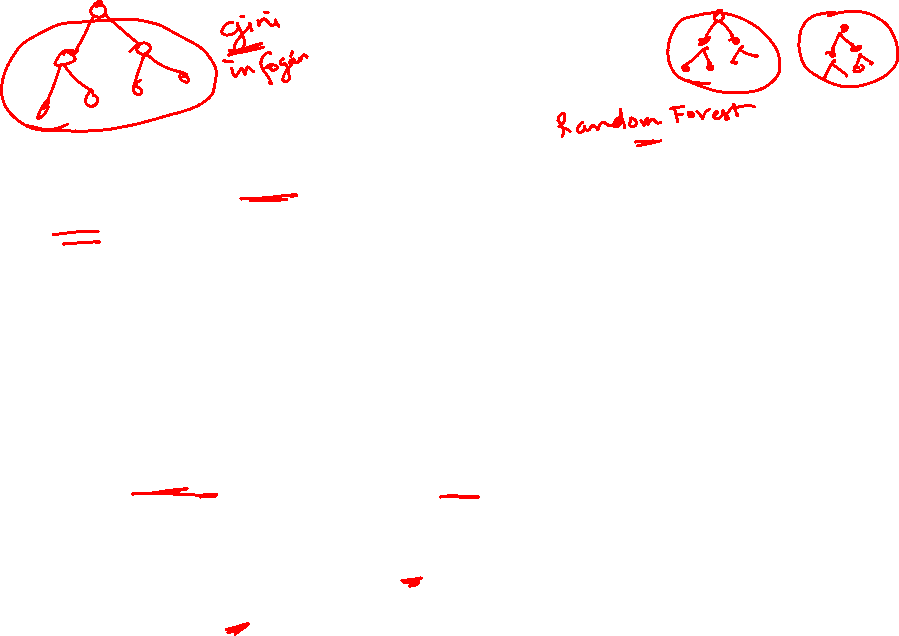 gini
infogain
Random Forest